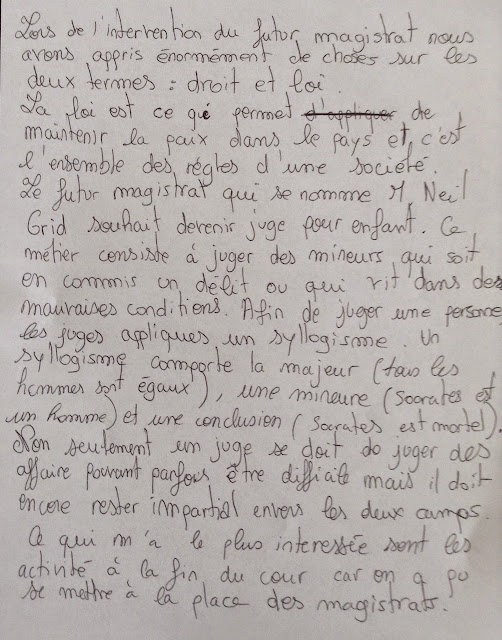 Lors de l'intervention du futur magistrat nous
avons appris énormément de choses sur les
deux termes : droit et loi.
La loi est ce qui permet d'appliquer de
maintenir la paix dans le pays et c'est
l'ensemble des règles d'une société.
Le futur magistrat qui se nomme M, Neil
Grid souhait devenir juge pour enfant. Ce
métier consiste à juger des mineurs qui soit
en commis un délit ou qui vit dans des
mauvaises conditions. Afin de juger une personne
les juges appliques un syllogisme. Un
syllogisme comporte la majeur (tous les
hommes sont égaux), une mineure (Socrates est
un homme) et une conclusion (Socrates est mortel).
Non seulement un juge se doit de juger des
affaire pouvant parfois être difficile mais il doit
encore rester impartial envers les deux camps.
Ce qui m'a le plus interessée sont les
activité à la fin du cour car on a pu
se mettre à la place des magistrats.